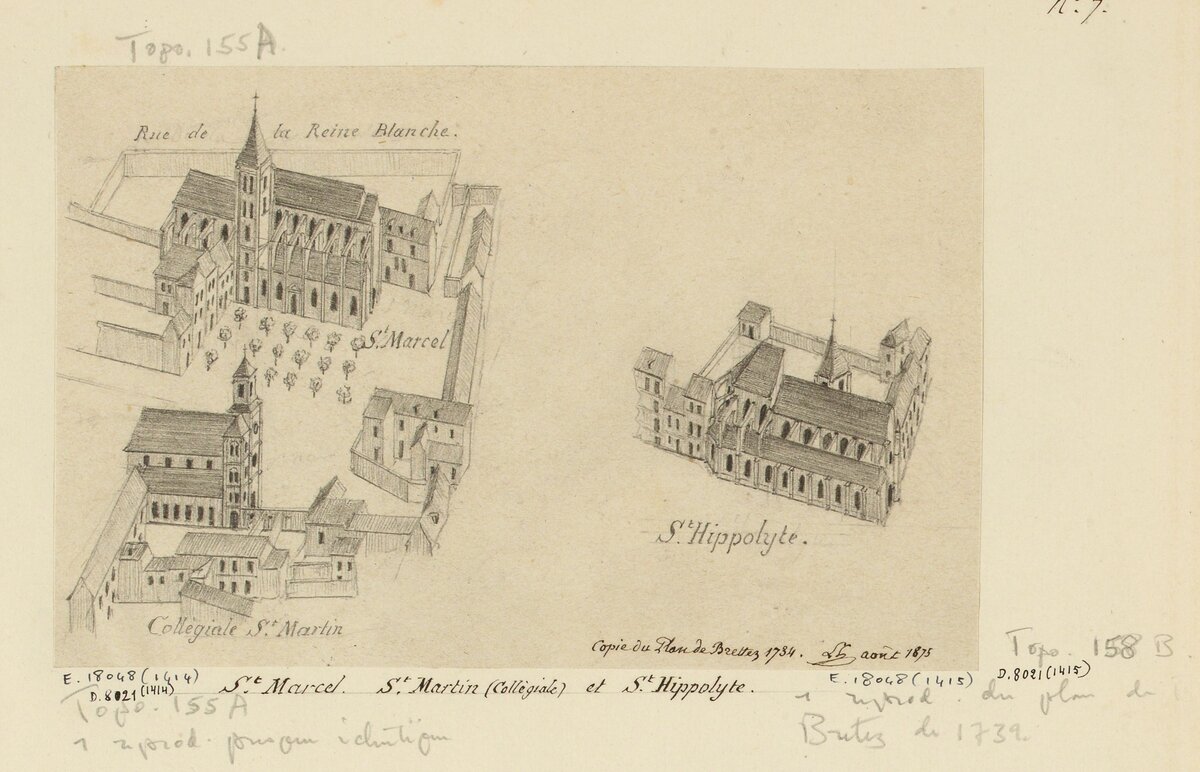 N.º 7.
Topo. 155 A.
Rue de la Reine Blanche.
S.t Marcel
S.t Hippolyte.
Collégiale S.t Martin
Copie du Plan de Brettez 1734. août 1875
Topo. 158 B
E. 18048 (1414)
D. 8021 (1414)
S.t Marcel. S.t Martin (Collégiale) et S.t Hippolyte.
E. 18048 (1415)
D. 8021 (1415)
Topo. 155 A
1 reprod. presque identique
1 reprod. du plan de
Bretez de 1739.